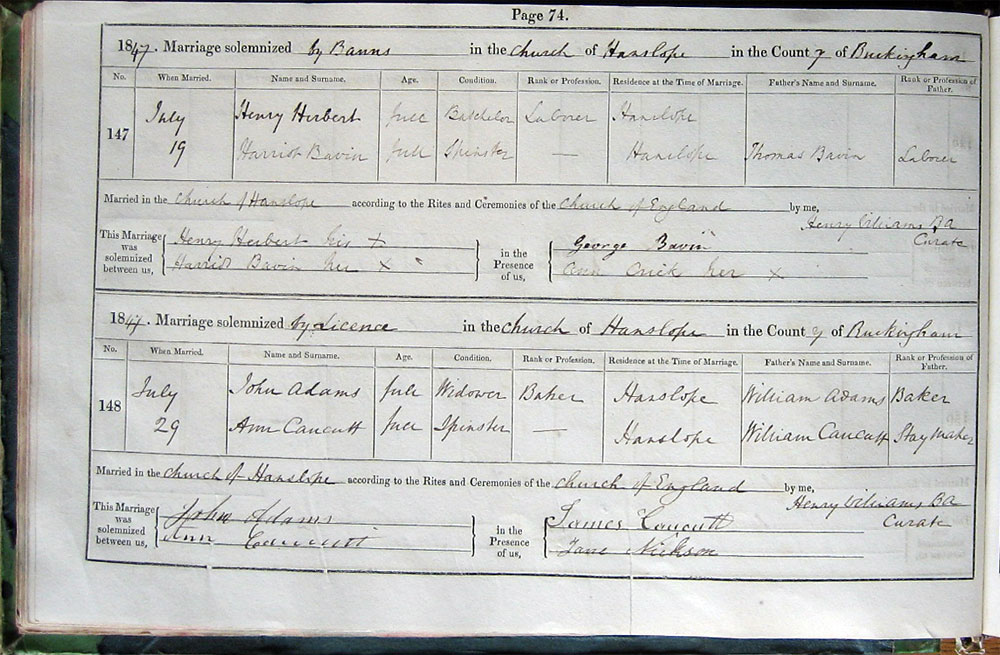 Page 74.
1847. Marriage solemnized by Banns in the Church of Hanslope in the County of Buckingham
No. When Married. Name and Surname. Age. Condition. Rank or Profession. Residence at the Time of Marriage. Father's Name and Surname. Rank or Profession of Father.
147
July Henry Herbert full Batchelor Laborer Hanslope
19 Harriot Bavin full Spinster — Hanslope Thomas Bavin Laborer
Married in the Church of Hanslope according to the Rites and Ceremonies of the Church of England by me,
Henry Williams BA
Curate
This Marriage was solemnized between us,
Henry Herbert his +
Harriot Bavin her ×
in the Presence of us,
George Bavin
Ann Crick her ×
1847. Marriage solemnized by Licence in the Church of Hanslope in the County of Buckingham
No. When Married. Name and Surname. Age. Condition. Rank or Profession. Residence at the Time of Marriage. Father's Name and Surname. Rank or Profession of Father.
148
July John Adams full Widower Baker Hanslope William Adams Baker
29 Ann Caucutt full Spinster — Hanslope William Caucutt Stay Maker
Married in the Church of Hanslope according to the Rites and Ceremonies of the Church of England by me,
Henry Williams BA
Curate
This Marriage was solemnized between us,
John Adams
Ann Caucutt
in the Presence of us,
James Caucutt
Jane